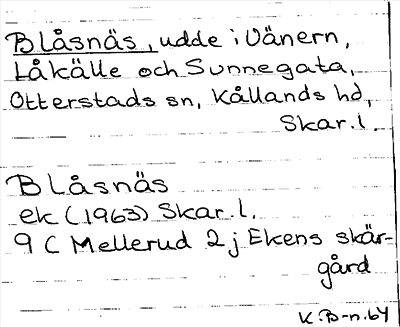 Blåsnäs, udde i Vänern,
Låkälle och Sunnegata,
Otterstads sn, Kållands hd,
Skar.l.
Blåsnäs
ek (1963) Skar.l.
9 C Mellerud 2 j Ekens skär-
gård
K.B-n.64